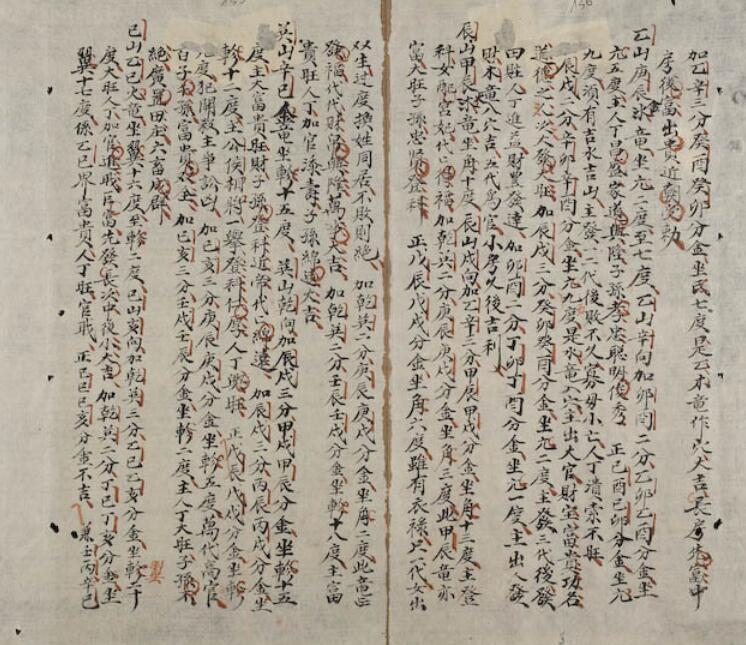 加乙辛三分癸酉癸卯分金坐氐七度是乙木竜作穴大吉長房朱䘮中
房後富出貴近朝受勅
乙山庚辰氷竜坐亢二度至七度乙山辛向加卯酉二分乙卯乙酉分金坐
亢五度主人丁昌盛家道興隆子孫孝忠聰明俊秀 正己酉己卯分金坐亢
九度須有吉水吉山主發一二代後敗不久寡母小亡人丁潰索不旺
辰戌二分辛卯辛酉分金坐亢九度是水竜入穴主出大官財宝富貴功名
道德之人次人發大旺加辰戌三分癸卯癸酉分金坐亢二度主發三代後發
田庄人丁進益財黑發達 加卯酉二分丁卯丁酉分金坐亢一度主出人發
財木竜入穴吉五代為官小房久後吉利
辰山甲辰氷竜坐角十度辰山戌向加乙辛三分甲辰甲戌分金坐角十三度主登
科女配宮妃代口保福加乾巽二分庚辰庚戌分金坐角三度此甲辰竜亦
富大旺子孫忠賢登科 正戊辰戊戌分金坐角六度雖有衣祿只一代女出
双生过度換姓同居不敗則絶 加乾巽二分庚辰庚戌分金坐角二度此竜正
發福代代財帛興隆萬代大吉 加乾巽二分壬辰壬戌分金坐軫十八度主富
貴旺人丁加官添壽子孫綿遠大吉
巽山辛巳金竜坐軫十五度 巽山乾向加辰戌三分甲戌甲辰分金坐軫十五
度主大富貴旺財子孫登科近帝代口綿遠 加辰戌三分丙辰丙戌分金坐
軫十二度主公侯相將一舉登科仕屋人丁興旺 正戊辰戊戌分金坐軫
九度犯關殺主爭訟凶 加巳亥三分庚辰庚戌分金坐軫五度萬代高官
百子千孫富貴双全 加己亥三分壬戌壬辰分金坐軫二度主人丁大旺子孫不
絶廣置田庄六畜成群
巳山乙巳火竜坐翼十六度至軫二度巳山亥向加乾巽三分乙巳乙亥分金坐軫一十
度大旺人丁加官進職房房先發長次中後小大吉 加乾巽二分丁巳丁亥分金坐
翼十七度係乙巳界富貴人丁旺官職 正己巳己亥分金不吉 兼壬丙辛巳
翼